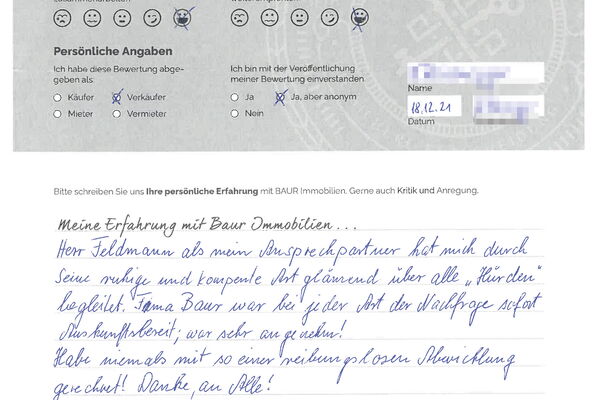 Persönliche Angaben
Ich habe diese Bewertung abge-
geben als:
Käufer Verkäufer
Mieter Vermieter
Ich bin mit der Veröffentlichung
meiner Bewertung einverstanden
Ja Ja, aber anonym
Nein
Name
18.12.21
Datum
Bitte schreiben Sie uns Ihre persönliche Erfahrung mit BAUR Immobilien. Gerne auch Kritik und Anregung.
Meine Erfahrung mit Baur Immobilien...
Herr Feldmann als mein Ansprechpartner hat mich durch
seine ruhige und kompente Art glänzend über alle „Hürden"
begleitet. Fama Baur war bei jeder Art der Nachfrage sofort
Auskunftsbereit; war sehr angenehm!
Habe niemals mit so einer reibungslosen Abwicklung
gerechnet! Danke, an Alle!